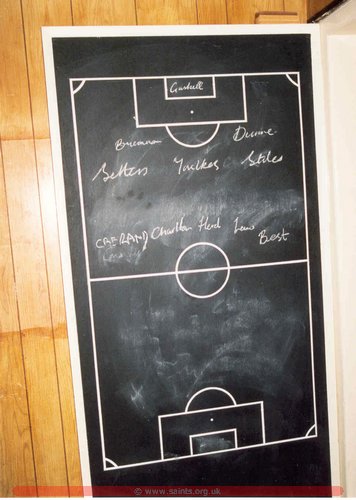 Gaskell
Brennan Dunne
Setters Foulkes Stiles
CRERAND Charlton Herd Law Best
© www.saints.org.uk